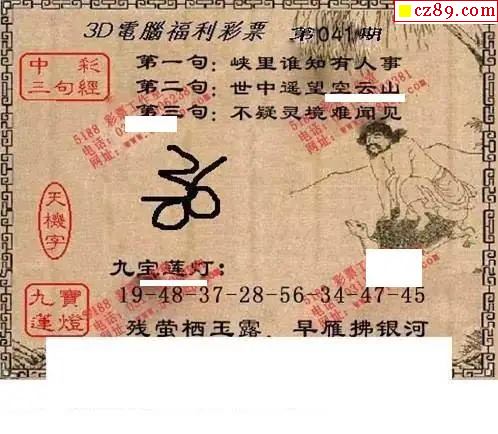 cz89.com
3D電腦福利彩票 第041期
中彩
三句經
第一句：峡里谁知有人事
第二句：世中遥望空云山
第三句：不疑灵境难闻见
天機字
九宝莲灯：
九寶蓮燈
19-48-37-28-56-34-47-45
残萤栖玉露，早雁拂银河